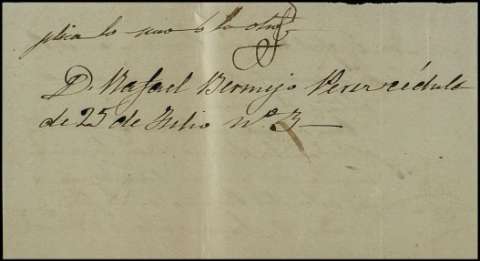 plia lo uno ó lo otro
D. Rafael Bermejo Perez cédula
de 25 de Julio Nº 3